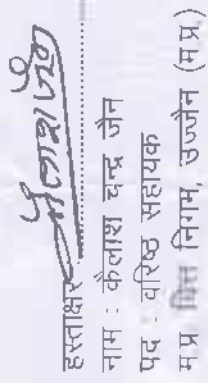 हस्ताक्षर कैलाश जैन
नाम : कैलाश चन्द्र जैन
पद : वरिष्ठ सहायक
म.प्र. वित्त निगम, उज्जैन (म.प्र.)